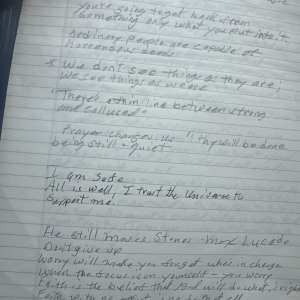 you're going to get back from
something only what you put into it.
ordinary people are capable of
horrendous deeds
* We don't see things as they are;
we see things as we are
"There's a thin line between strong
and calloused"
Prayer changes us "Thy will be done
being still + quiet.
I am Safe
All is well, I trust the Universe to
support me.
He Still Moves Stones - Max Lucado
Don't give up
Worry will make you forget who's in charge
when the focus is on yourself - you worry
Faith is the belief that God will do what is right